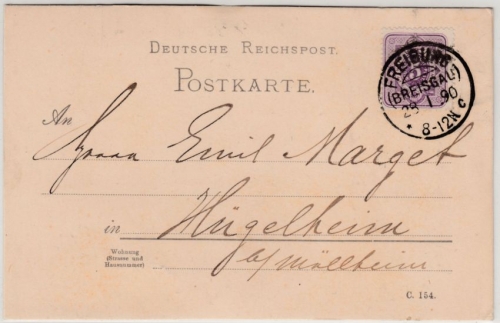 DEUTSCHE REICHSPOST.
POSTKARTE.
FREIBURG
(BREISGAU)
28 1 90
* 8-12N c
An
Herrn Emil Marget
in Hügelheim
Wohnung
(Strasse und
Hausnummer)
b/ Müllheim
C. 154.